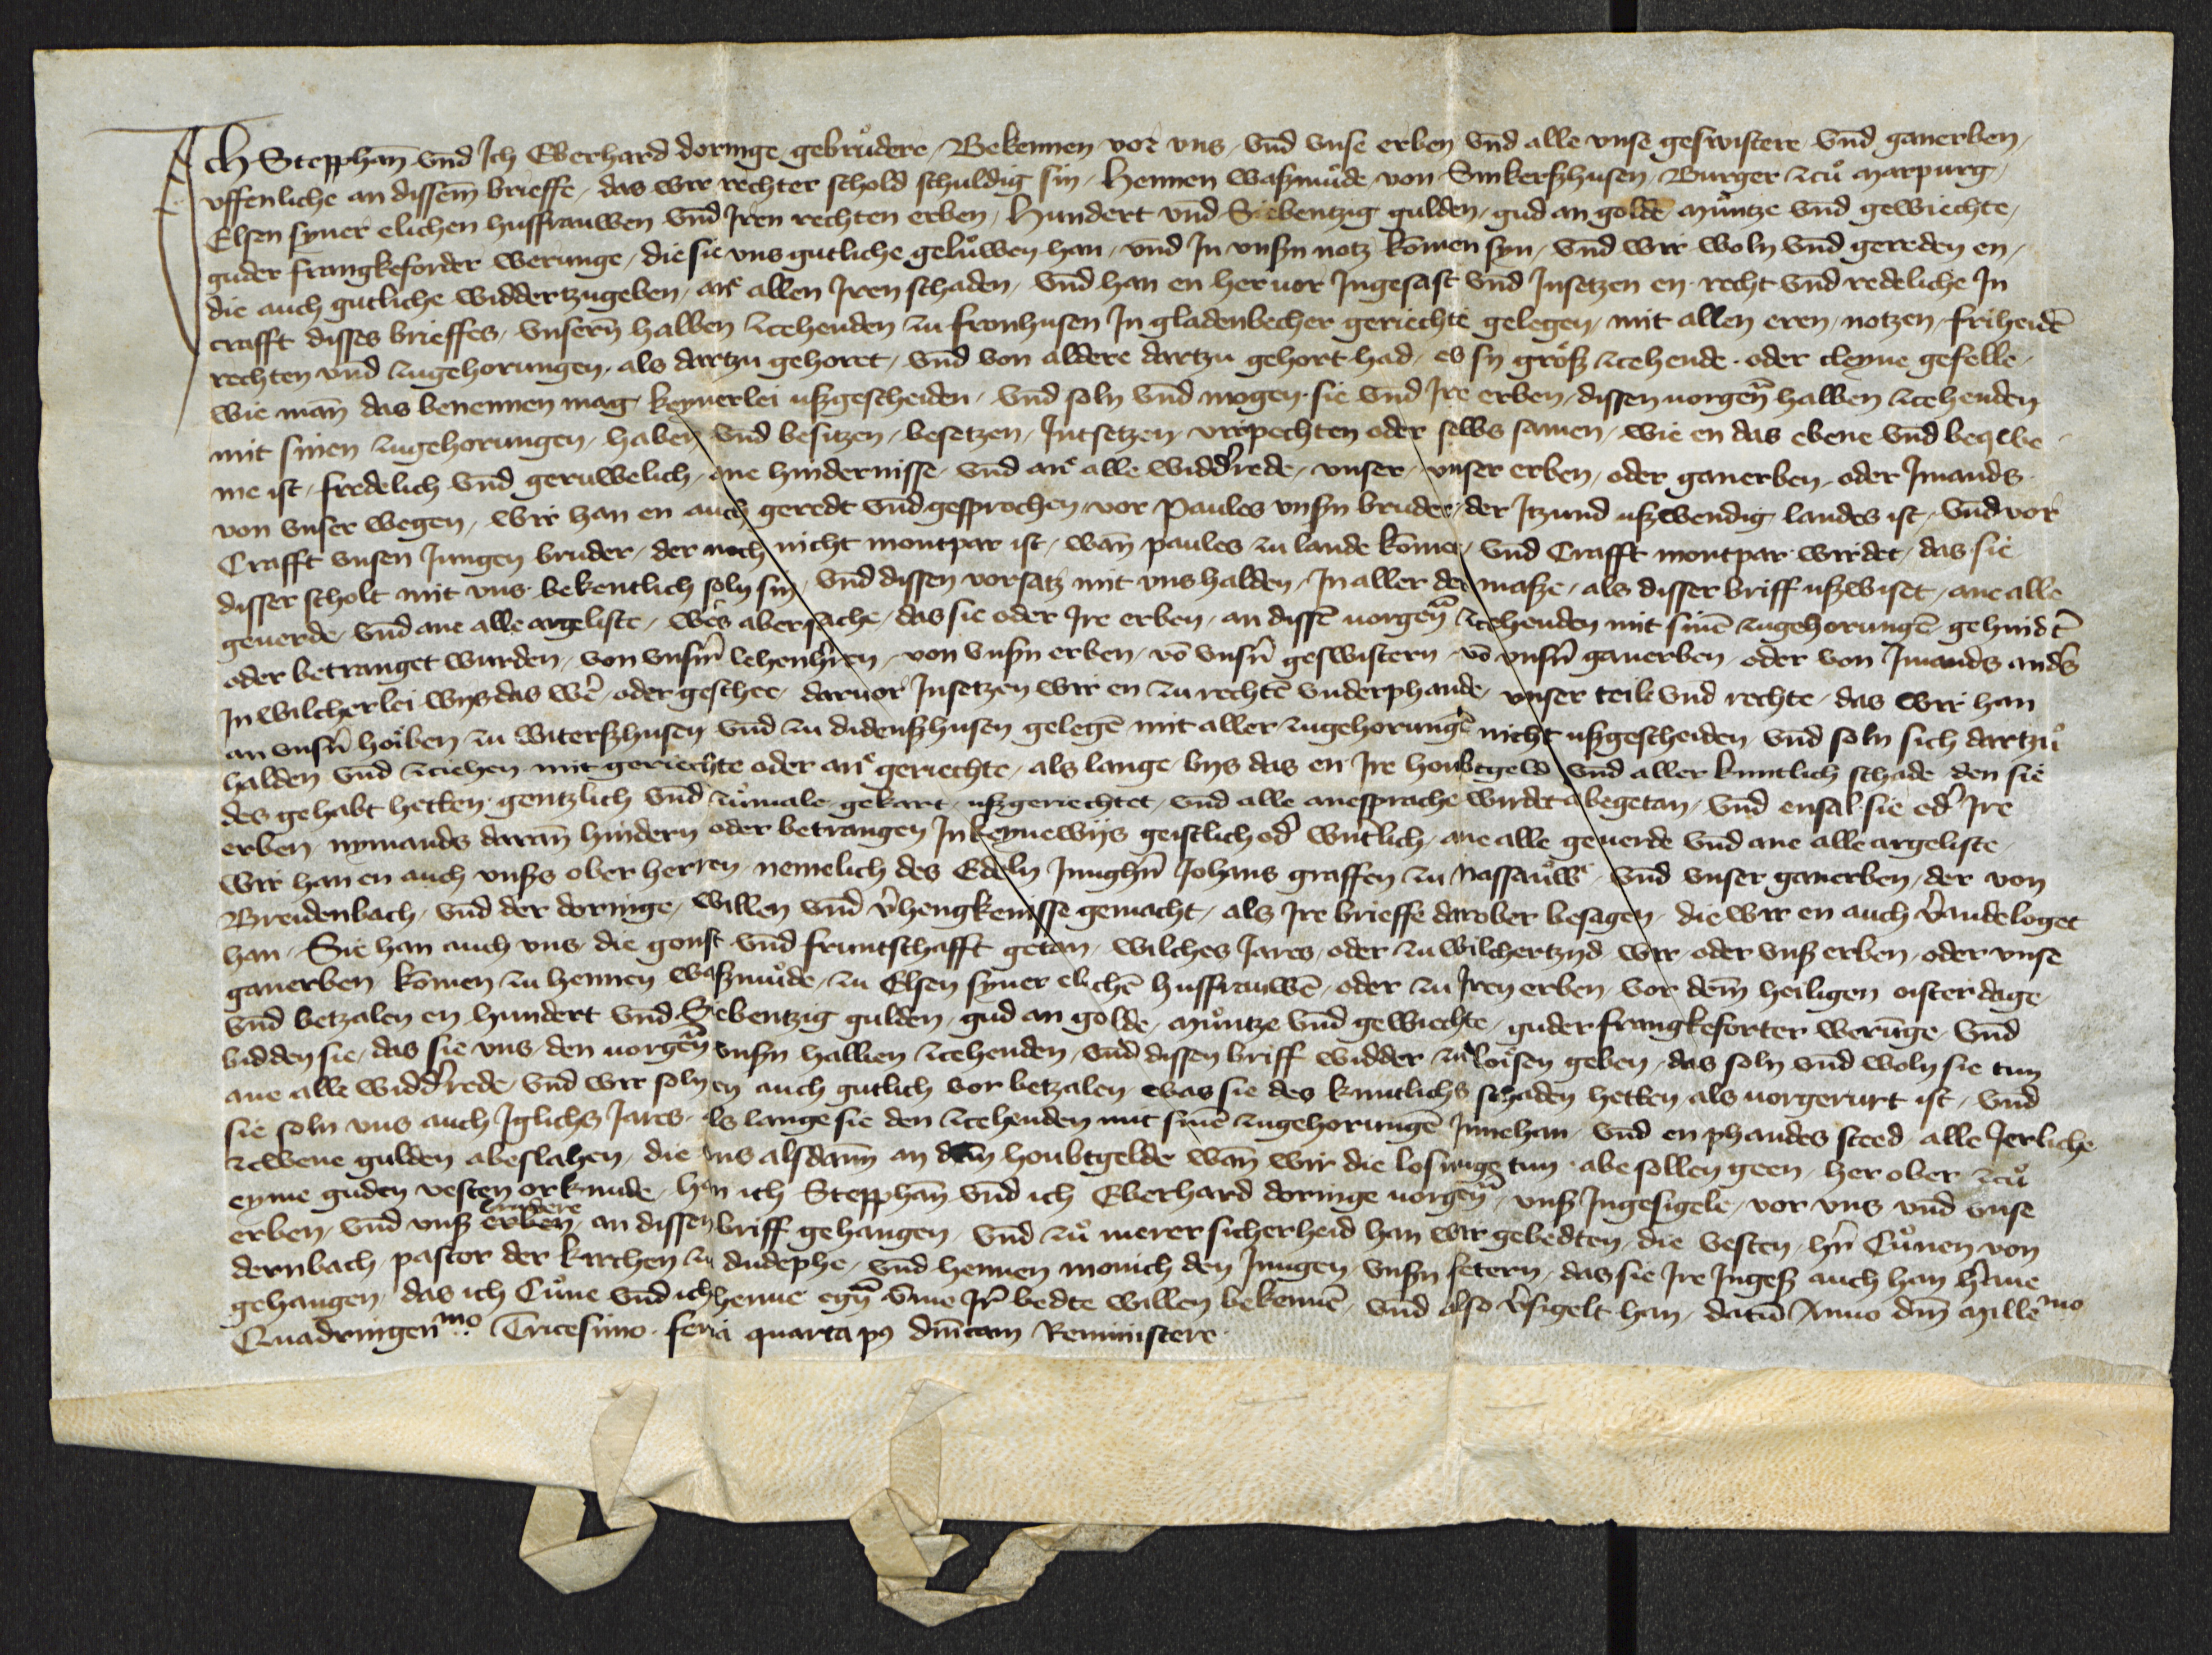 Ich Stepphan̄ vnd Ich Eberhard doringe gebrůdere / Bekennen vor vns / vnd vnse erben vnd alle vnse geswistere vnd ganerben /
vffenliche an dissem̄ brieffe / das wir rechter schold schuldig sin / Hennen waßmůde von Sinkerßhusen / Burger zců Marpurg /
Elsen syner elichen husfrauwen vnd Iren rechten erben / Hundert vnd Siebentzig gulden / gud an golde Můntze vnd gewiechte /
guder frangkeforder werunge / die sie vns gutliche gelůwen han / vnd In vnsern notz kōmen syn / vnd wir woln vnd gereden en /
die auch gutliche widdertzugeben / ane allen Iren schaden / vnd han en heruor Ingesast vnd Insetzen en recht vnd redeliche In
crafft disses brieffes / vnsern̄ halben zcehenden zu fronhusen In gladenbecher geriechte gelegen / mit allen eren / notzen / friheidē
rechten vnd zugehorungen / als dartzu gehoret / vnd von aldere dartzu gehort had / es sy groß zcehende oder cleyne gefelle /
wie man̄ das benennen mag keynerlei ußgescheiden / vnd soln vnd mogen sie vnd Ire erben / dissen uorgen̄ halben zcehenden
mit sinen zugehorungen / haben vnd besitzen / besetzen / Intsetzen / virpechten oder selbs samen / wie en das ebene vnd beqwe
me ist / fredelich vnd geruwelich / ane hindernisse / vnd ane alle widdrede / vnser / vnser erben / oder ganerben / oder Imands
von vnser wegen / wir han en auch geredt vnd gesprochen / vor Paules vnsern bruder / der Itzund ußwendig landes ist / vnd vor
Crafft vnsen Jungen bruder / der noch nicht montpar ist / wan̄ paules zu lande kōmet / vnd Crafft montpar wirdet / das sie
disser scholt mit vns bekentlich soln sin / vnd dissen vorsatz mit vns halden / In aller der maße / als disser briff ußwiset / ane alle
geuerde / vnd ane alle argeliste / wes aber sache / das sie oder Ire erben / an dissē uorgen̄ zcehenden mit sinē zugehorungē gehindt
oder betranget wurden / von vnsern̄ lehenhren / von vnsern erben / vō vnsern geswistern / vō vnsern ganerben / oder von Imands anders
In wilcherlei wys das wer / oder geschee / daruor Insetzen wir en zu rechtē vnderphande / vnser teil vnd rechte / das wir han
an vnsern hoiben zu witerßhusen vnd zu didenßhusen gelegē mit aller zugehorungē nicht ußgescheiden / vnd soln sich dartzů
halden vnd zciehen mit geriechte oder ane geriechte / als lange bys das en Ire houbtgeld vnd aller kuntlich schade den sie
des gehabt hetten gentzlich vnd zůmale gekart / ußgeriechtet / vnd alle anesprache wirdet abegetan / vnd ensal sie odr Ire
erben nymands daran̄ hindern oder betrangen In keyne wijs geistlich odr wrtlich / ane alle geuerde vnd ane alle argeliste
wir han en auch vnsers ober herren nemelich des Edeln Junghrn̄ Johans graffen zu Nassauwe / vnd vnser ganerben / der von
Breidenbach / vnd der doringe / willen vnd vrhengkenisse gemacht / als Ire brieffe darober besagen / die wir en auch vrandeloget
han / Sie han auch vns / die gonst vnd fruntschafft getan / wilches Jares / oder zu wilchertzyd wir oder vnß erben / oder vnse
ganerben kōmen zu hennen waßmůde / zu Elsen syner elichē husfrauwē / oder zu Iren erben / vor dem̄ heiligen oisterdage
vnd betzalen en hundert vnd Siebentzig gulden / gud an golde / Můntze vnd gewiechte / guder frangkeforter werūnge / vnd
bidden sie / das sie vns / den uorgen̄ vnsern halben zcehenden / vnd dissen briff widder zu loisen geben / das soln vnd woln sie tun
ane alle widdrede / vnd wir soln en auch gutlich vor betzalen was sie des kuntlichs schaden hetten als uorgerurt ist / vnd
sie soln vns auch Iglichs Jares / als lange sie den zcehenden mit sinē zugehorungē Innehan / vnd en phandes steed / alle Jerliche
zcwene gulden abeslahen / die vns alsdann̄ an dem̄ houbtgelde wan̄ wir die losunge tun / abe sollen geen / her ober zců
eyme guden vesten orkunde / han ich Stepphan̄ vnd ich Eberhard doringe uorgen̄ / vnß Ingesigele / vor vns vnd vnse
erben / vnd vnß erben brudere / an dissen briff gehangen / vnd zů merer sicherheid han wir gebedten / die vesten / hrn̄ Cůnen von
dernbach / pastor der kirchen zu dudephe / vnd hennen monich den Jungen vnsern fetern / das sie Ire Ingeß auch han hrane
gehangen / das ich Cůne vnd ich henne egn̄ vm̄e Ir bedte willen bekennē / vnd also vrsigelt han / datū Anno dm̄ Mille mo
Quadringen mo Tricesimo feria quarta p9 dm̄cam Reministere